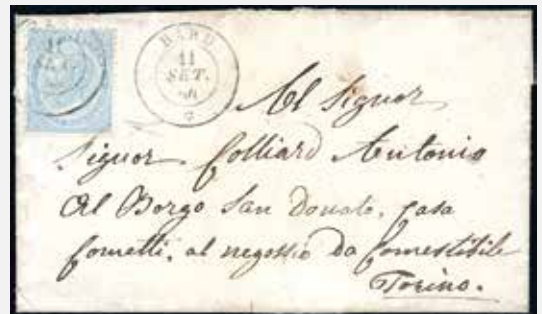 BARD
11
SET.
11
SET.
Al Signor
Signor Colliard Antonio
Al Borgo San Donato, Casa
Cometti, al negossio da Comestibile
Torino.